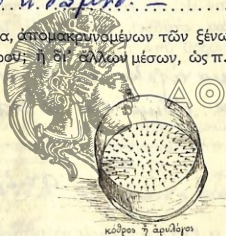 α, ἀπομακρυνομένων τῶν ξένω
ρου; ἢ δι' ἄλλων μέσων, ὡς π.
ΑΘ
κόθρος ἢ ἀριλόγος